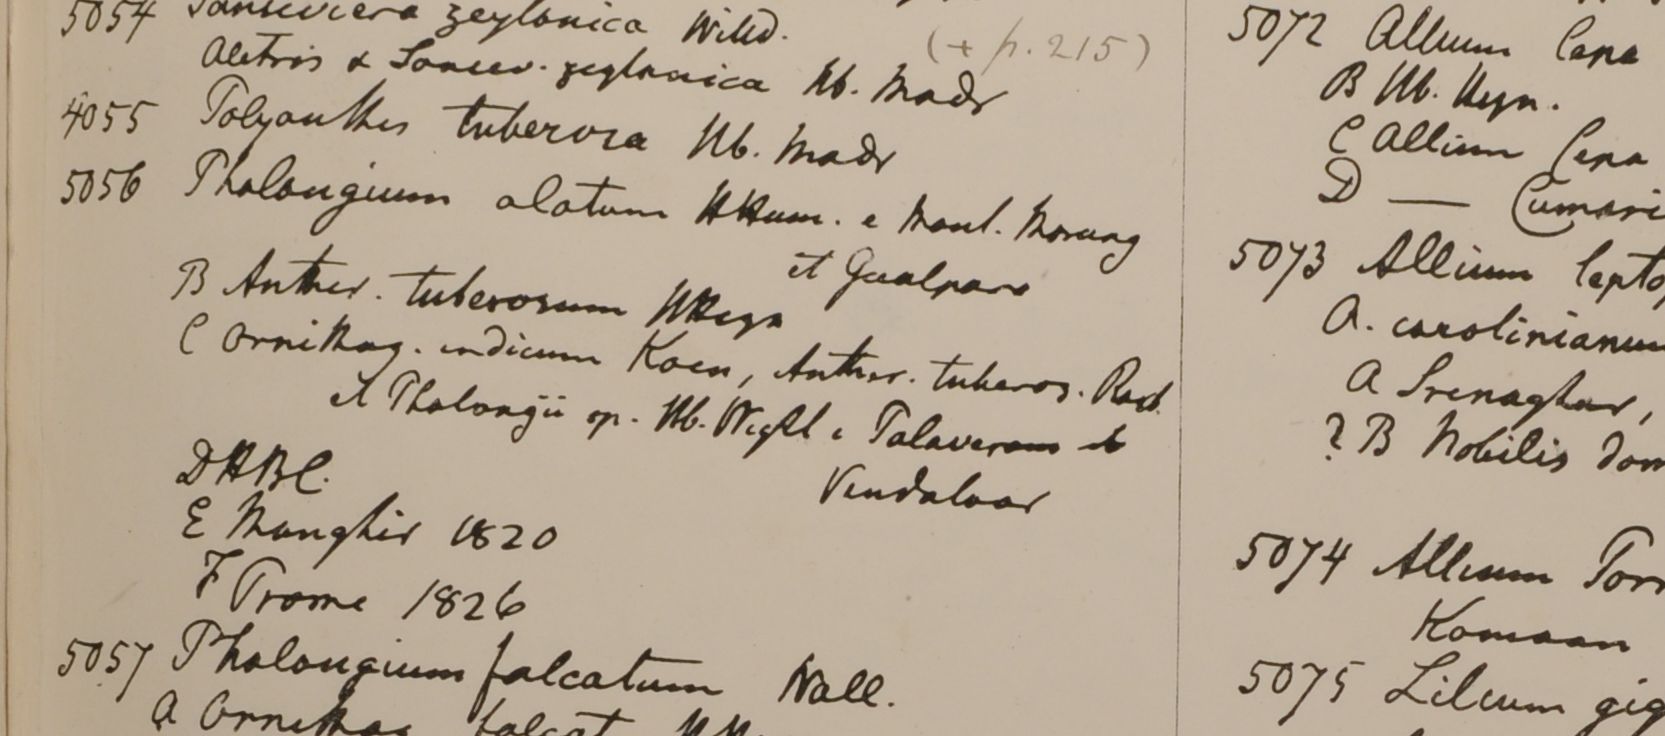 5054 Sanseviera zeylanica Willd.
(+ p. 215)
Aletris & Sansev. zeylanica Hb. Madr
4055 Polyanthes tuberosa Hb. Madr
5056 Phalangium alatum HHam. e Mont. Morung
et Gualpara
B Anther. tuberosum HHeyn
C Ornithog. indicum Koen, Anther. tuberos. Roxb.
et Phalangii sp. Hb. Wight e Talaveram et
Vendaloor
D HBC.
E Munghir 1820
F Prome 1826
5057 Phalangium falcatum Wall.
A Ornithog falcat
5072 Allium Cepa
B Hb. Heyn.
C Allium Cepa
D — Cumari
5073 Allium lepto
A. carolinianum
A Srenaghur,
? B Nobilis dom
5074 Allium
Kamaon
5075 Lilium gig